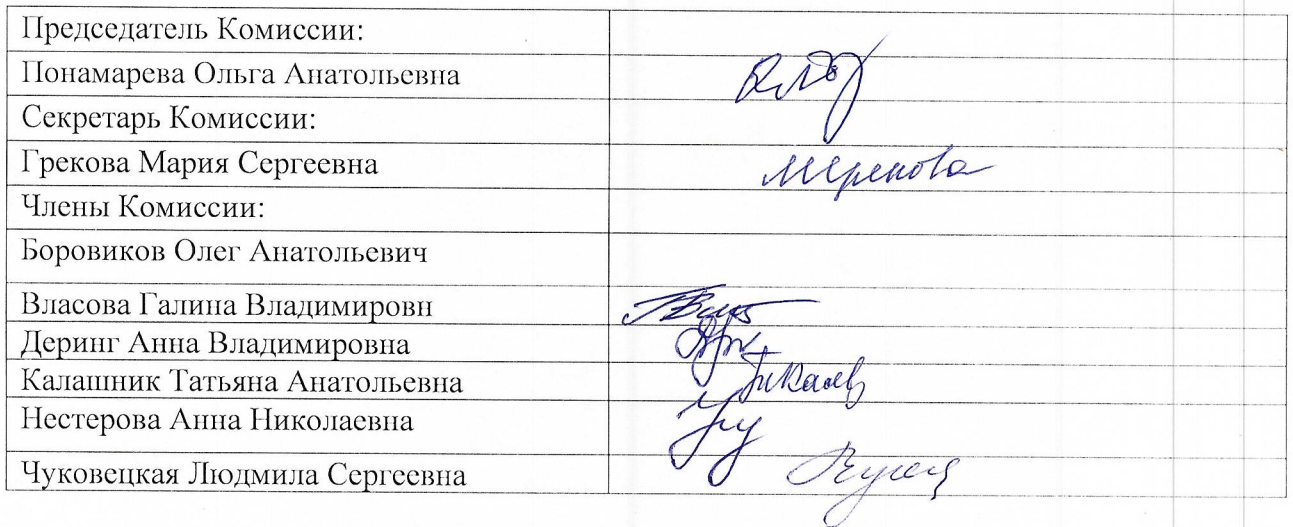 Председатель Комиссии:
Понамарева Ольга Анатольевна
Секретарь Комиссии:
Грекова Мария Сергеевна
Члены Комиссии:
Боровиков Олег Анатольевич
Власова Галина Владимировн
Деринг Анна Владимировна
Калашник Татьяна Анатольевна
Нестерова Анна Николаевна
Чуковецкая Людмила Сергеевна